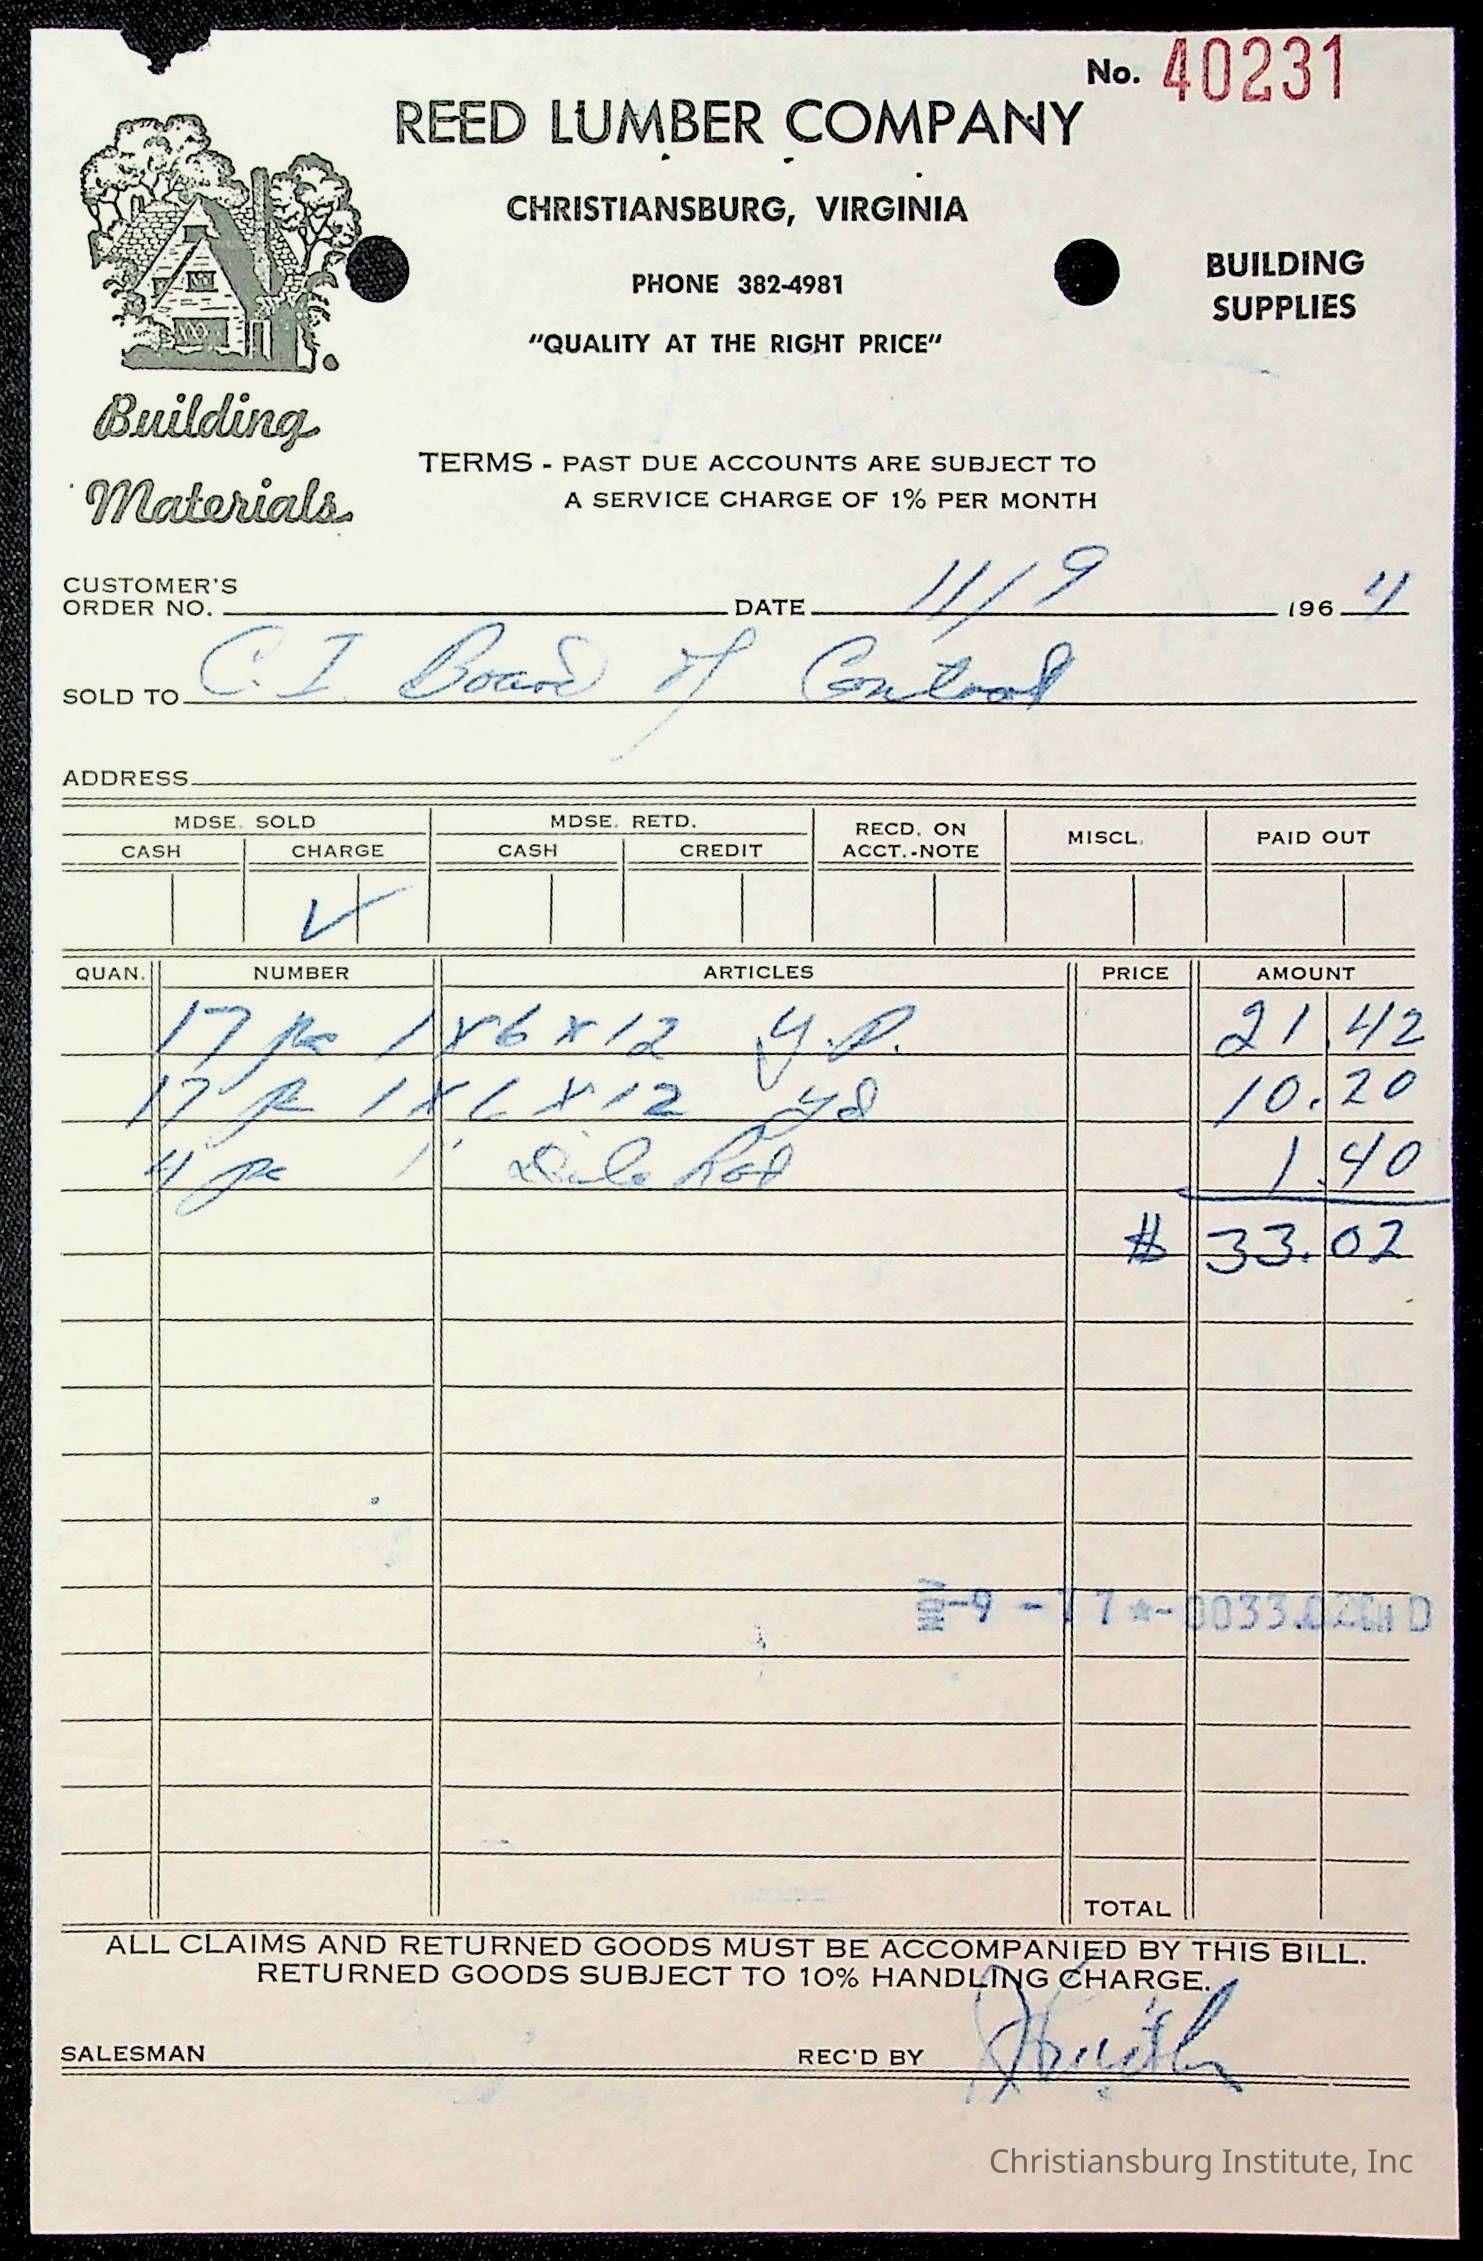 No. 40231
REED LUMBER COMPANY
CHRISTIANSBURG, VIRGINIA
PHONE 382-4981
"QUALITY AT THE RIGHT PRICE"
BUILDING
SUPPLIES
Building
Materials
TERMS - PAST DUE ACCOUNTS ARE SUBJECT TO
A SERVICE CHARGE OF 1% PER MONTH
CUSTOMER'S
ORDER NO. DATE 11/9 1964
SOLD TO C. I. Board of Control
ADDRESS
MDSE. SOLD MDSE. RETD. RECD. ON ACCT.-NOTE MISCL. PAID OUT
CASH CHARGE CASH CREDIT
✓
QUAN. NUMBER ARTICLES PRICE AMOUNT
17 pc 1 x 6 x 12 y.p. 21.42
17 pc 1 x 6 x 12 10.20
4 pc 1" 1.40
$ 33.02
NOV -9 -
TOTAL
ALL CLAIMS AND RETURNED GOODS MUST BE ACCOMPANIED BY THIS BILL.
RETURNED GOODS SUBJECT TO 10% HANDLING CHARGE.
SALESMAN REC'D BY
Christiansburg Institute, Inc